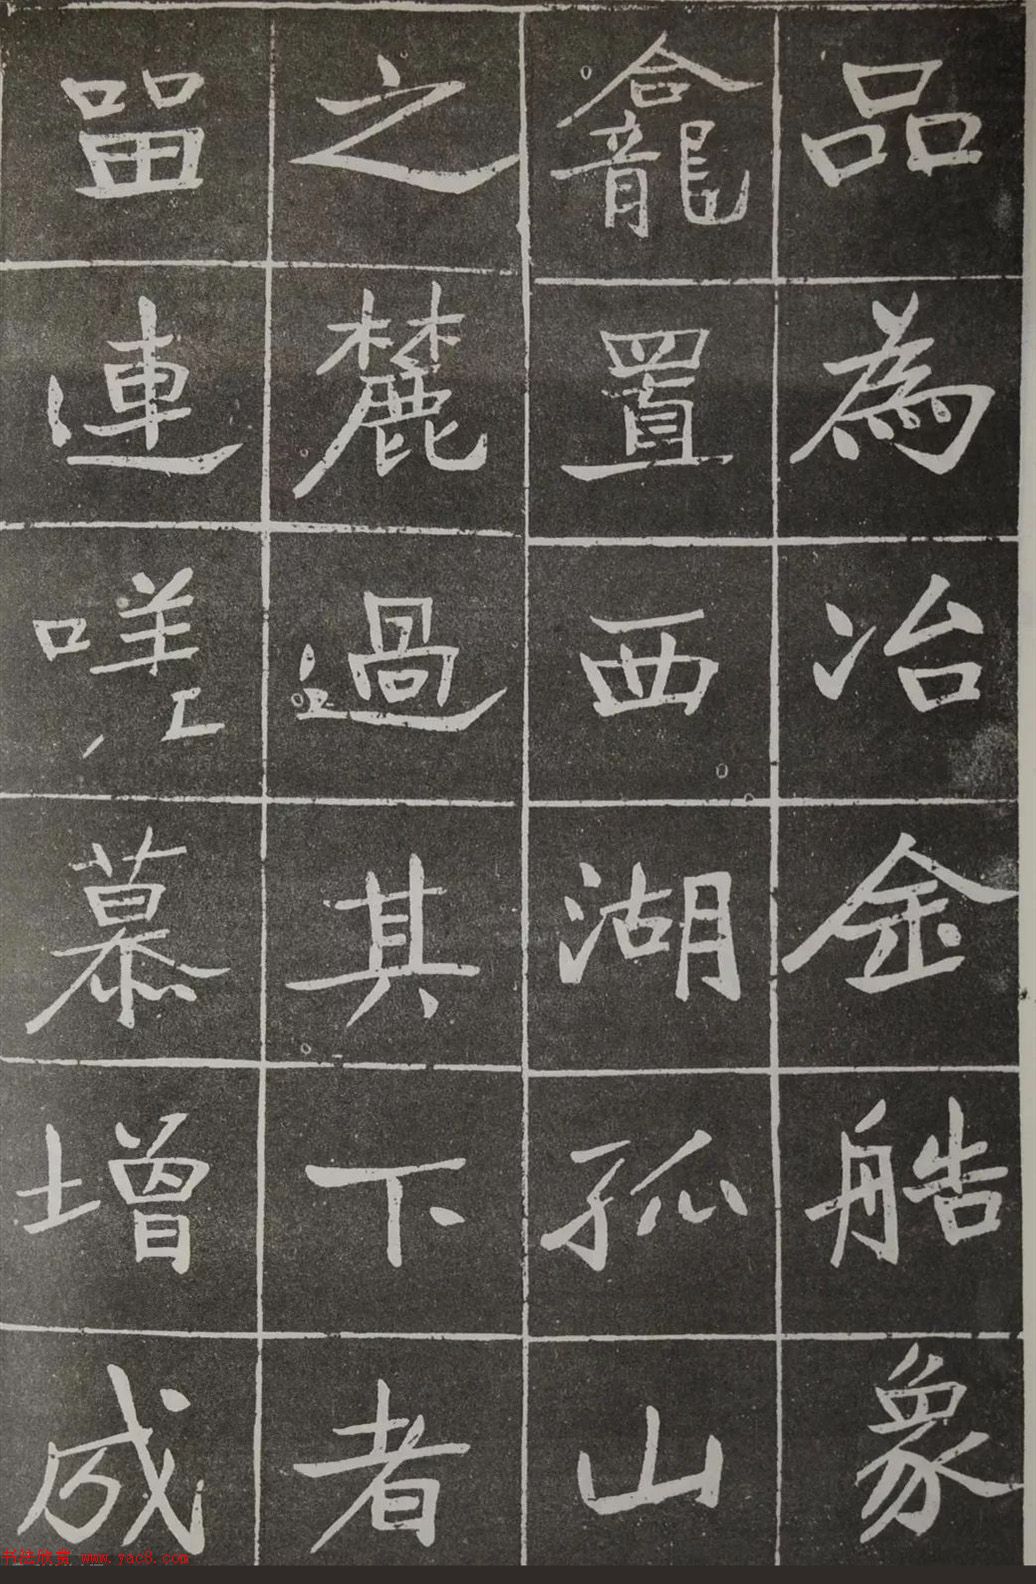 品為冶金䑪象
龕置西湖孤山
之麓過其下者
畱連嘆慕增成
书法欣赏 www.yac8.com